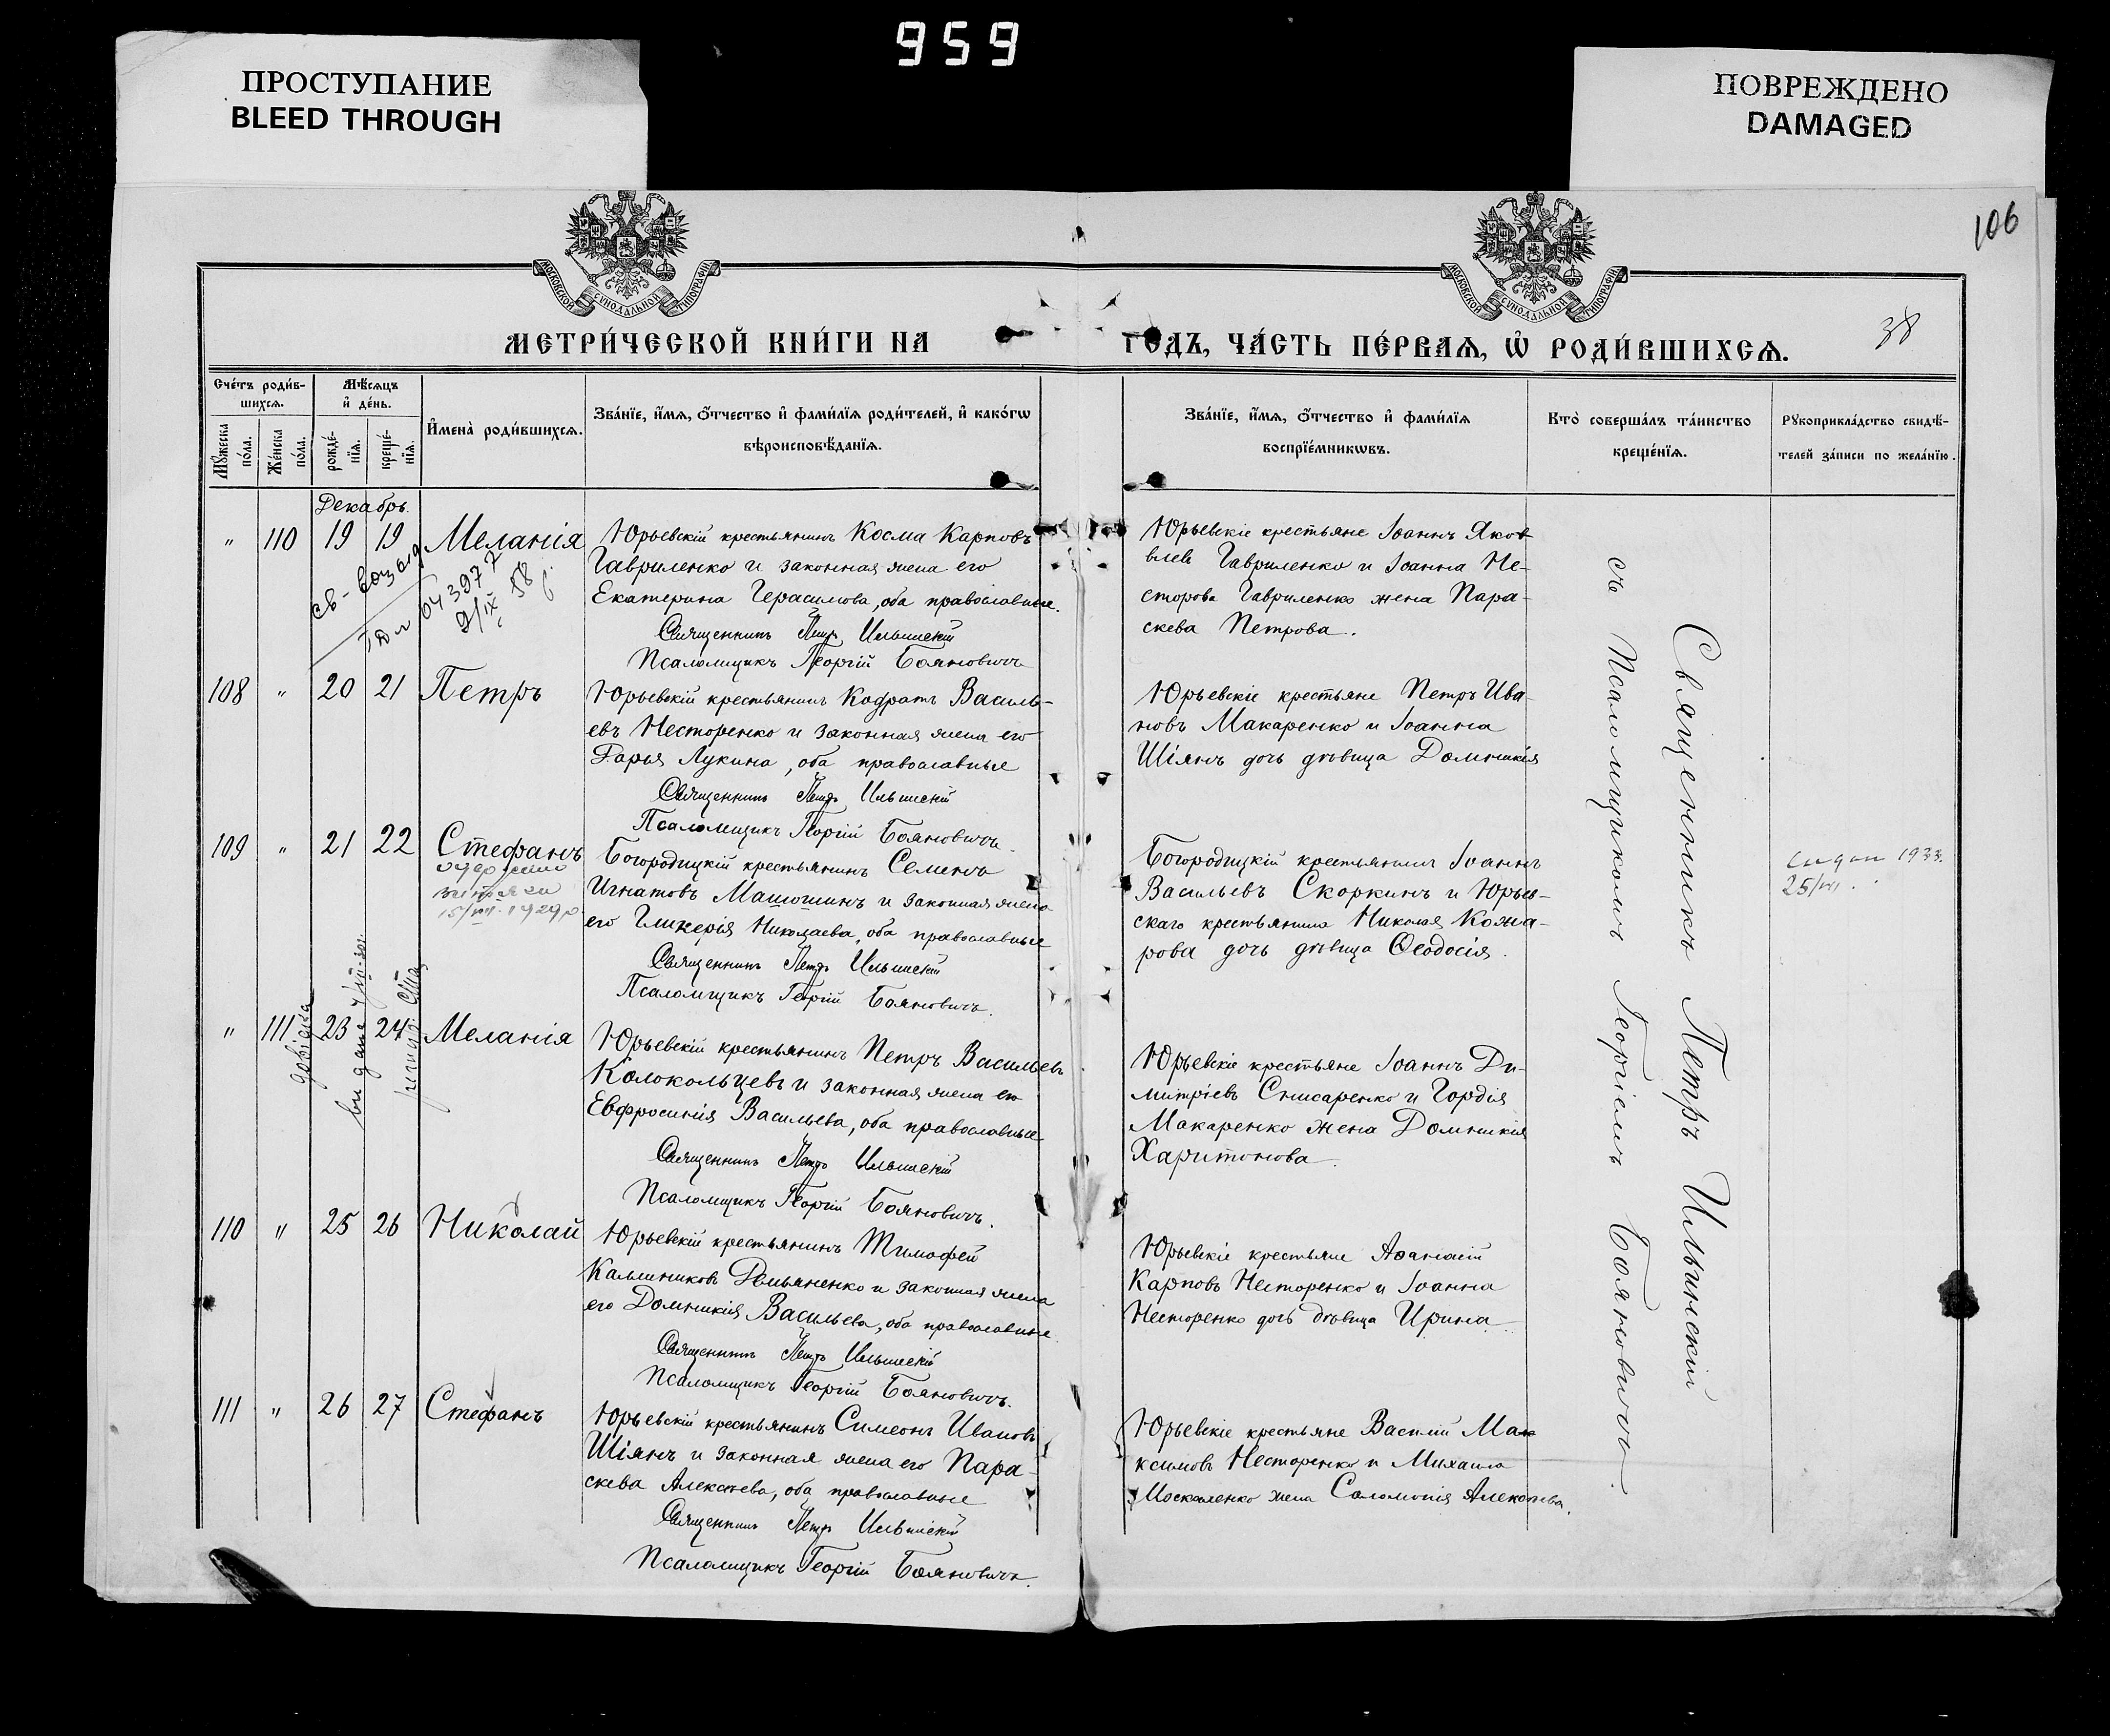 959
ПРОСТУПАНИЕ
BLEED THROUGH
ПОВРЕЖДЕНО
DAMAGED
106
МОСКОВСКОЙ СѴНОДАЛЬНОЙ ТИПОГРАФІИ
МОСКОВСКОЙ СѴНОДАЛЬНОЙ ТИПОГРАФІИ
МЕТРИ́ЧЕСКОЙ КНИ́ГИ НА
ГОДЪ, ЧА́СТЬ ПЕ́РВАѦ, Ѡ҆ РОДИ́ВШИХСѦ.
38
Сче́тъ роди́в-
шихсѧ.
Мѣ́сѧцъ
и҆ де́нь.
Мꙋ́жеска по́ла.
Же́нска по́ла.
рожде́-
нїѧ.
креще́-
нїѧ.
И҆мена̀ роди́вшихсѧ.
Зва́нїе, и҆́мѧ, ѻ҆́тчество и҆ фами́лїѧ роди́телей, и҆ како́гѡ
вѣроисповѣ́данїѧ.
Зва́нїе, и҆́мѧ, ѻ҆́тчество и҆ фами́лїѧ
воспрїе́мникѡвъ.
Кто̀ соверша́лъ та́инство
креще́нїѧ.
Рꙋкоприкла́дство свидѣ́-
телей за́писи по жела́нїю.
Декабрь.
" 110 19 19 Меланія
Юрьевскій крестьянинъ Косма Карповъ
Гавриленко и законная жена его
Екатерина Герасимова, оба православные.
Священникъ Петръ Ильинскій
Псаломщикъ Георгій Бояновичъ
Юрьевскіе крестьяне Іоаннъ Яков-
влевъ Гавриленко и Іоанна Не-
сторова Гавриленко жена Пара-
скева Петрова.
043977
9/IX 58
108 " 20 21 Петръ
Юрьевскій крестьянинъ Кодратъ Василь-
евъ Несторенко и законная жена его
Дарья Лукина, оба православные
Священникъ Петръ Ильинскій
Псаломщикъ Георгій Бояновичъ
Юрьевскіе крестьяне Петръ Ива-
новъ Макаренко и Іоанна
Шіянъ дочь дѣвица Домникія
109 " 21 22 Стефанъ
15/VII. 1929 р
Богородицкій крестьянинъ Семенъ
Игнатовъ Машошинъ и законная жена
его Гликерія Николаева, оба православные
Священникъ Петръ Ильинскій
Псаломщикъ Георгій Бояновичъ.
Богородицкій крестьянинъ Іоаннъ
Васильевъ Скоркинъ и Юрьев-
скаго крестьянина Николая Кожа-
рова дочь дѣвица Ѳеодосія.
1933.
25/VII.
" 111 23 24 Меланія
довідка
видана
Юрьевскій крестьянинъ Петръ Васильевъ
Колокольцевъ и законная жена его
Евфросинія Васильева, оба православные
Священникъ Петръ Ильинскій
Псаломщикъ Георгій Бояновичъ.
Юрьевскіе крестьяне Іоаннъ Ди-
митріевъ Снисаренко и Гордія
Макаренко жена Домникія
Харитонова.
110 " 25 26 Николай
Юрьевскій крестьянинъ Тимофей
Калиниковъ Демьяненко и законная жена
его Домникія Васильева, оба православные
Священникъ Петръ Ильинскій
Псаломщикъ Георгій Бояновичъ.
Юрьевскіе крестьяне Аѳанасій
Карповъ Несторенко и Іоанна
Несторенко дочь дѣвица Ирина
111 " 26 27 Стефанъ
Юрьевскій крестьянинъ Симеонъ Ивановъ
Шіянъ и законная жена его Пара-
скева Алексѣева, оба православные
Священникъ Петръ Ильинскій
Псаломщикъ Георгій Бояновичъ.
Юрьевскіе крестьяне Василій Мак-
ксимовъ Несторенко и Михаила
Москаленко жена Соломонія Алексѣева.
Священникъ Петръ Ильинскій
съ Псаломщикомъ Георгіемъ Бояновичъ.